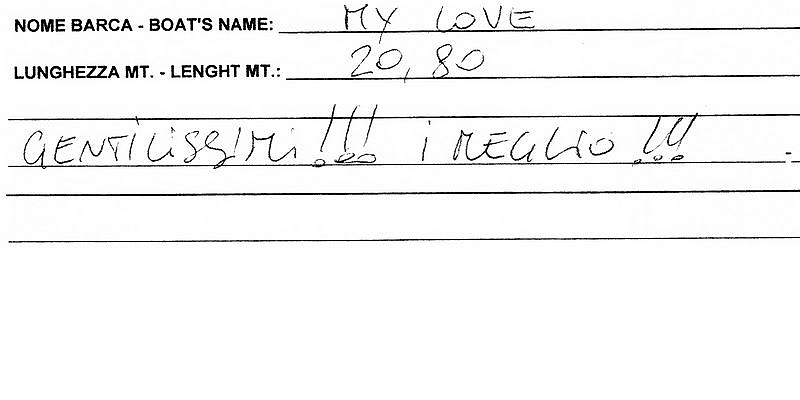 NOME BARCA - BOAT'S NAME: MY LOVE
LUNGHEZZA MT. - LENGHT MT.: 20,80
GENTILISSIMI!!! I MEGLIO!!!